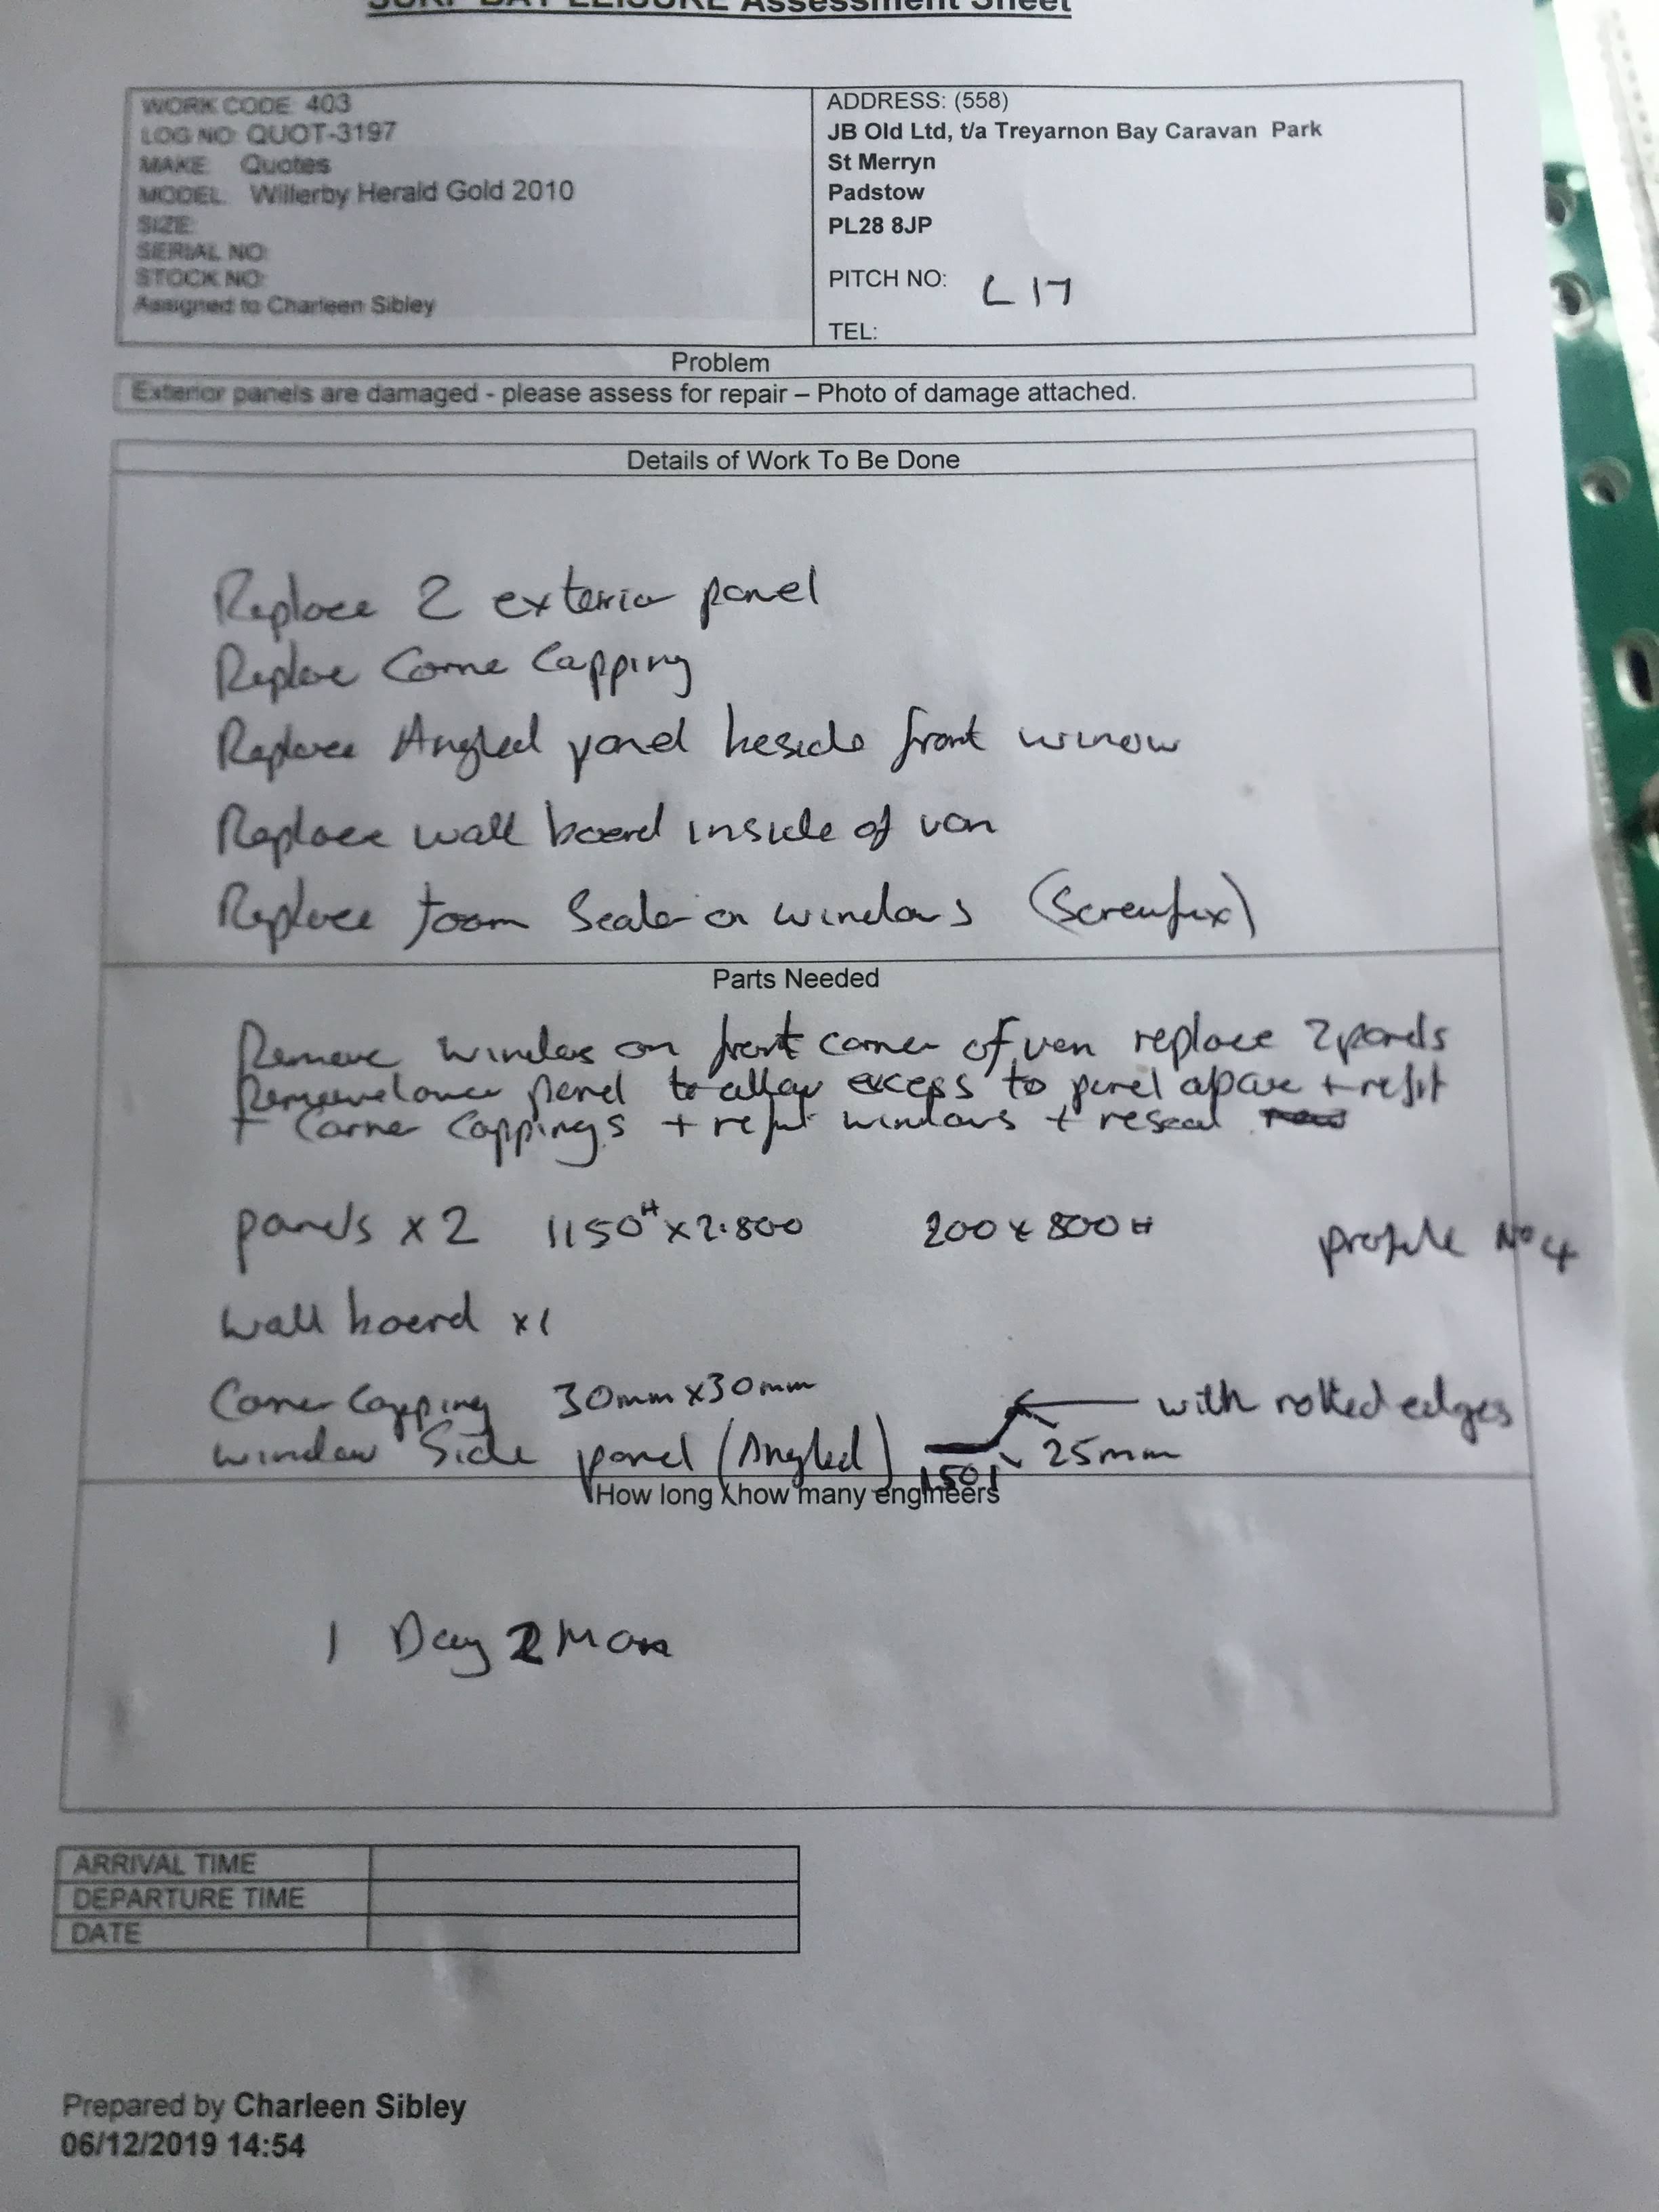 SURF BAY LEISURE Assessment Sheet
WORK CODE: 403
LOG NO: QUOT-3197
MAKE: Quotes
MODEL: Willerby Herald Gold 2010
SIZE:
SERIAL NO:
STOCK NO:
Assigned to Charleen Sibley
ADDRESS: (558)
JB Old Ltd, t/a Treyarnon Bay Caravan Park
St Merryn
Padstow
PL28 8JP
PITCH NO: L17
TEL:
Problem
Exterior panels are damaged - please assess for repair – Photo of damage attached.
Details of Work To Be Done
Replace 2 exterior panel
Replace Corner Capping
Replace Angled panel beside front window
Replace wall board inside of van
Replace foam Sealer on windows (Screwfix)
Parts Needed
Remove windows on front corner of van replace 2 panels
panel to allow excess to panel above + refit
+ Corner Cappings + refit windows + reseal
panels x 2 1150H x 2.800 200 x 800H profile No 4
wall board x1
Corner Capping 30mm x 30mm with rolled edges
window Side panel (Angled) 150 25mm
How long \ how many engineers
1 Day 2 Man
ARRIVAL TIME
DEPARTURE TIME
DATE
Prepared by Charleen Sibley
06/12/2019 14:54